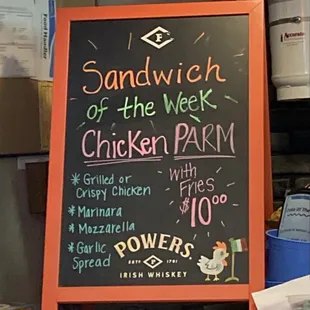 Food Handler
F
Sandwich
of the Week
Chicken PARM
* Grilled or
Crispy Chicken
* Marinara
* Mozzarella
* Garlic
Spread
with
Fries
$10⁰⁰
POWERS.
ESTD F 1791
IRISH WHISKEY